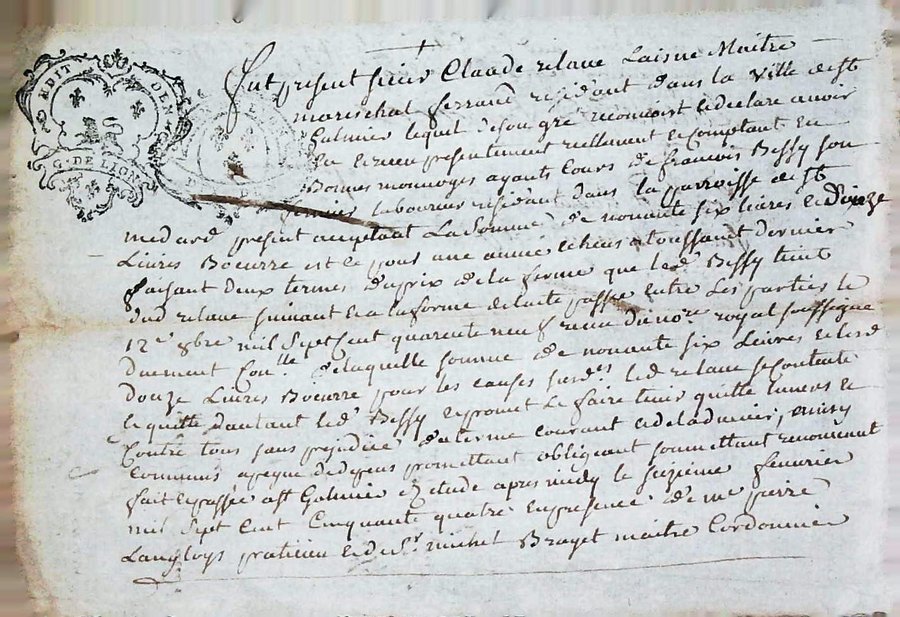 Fut present sieur Claude relave Laisne Maitre
mareschal ferrand residant dans la ville de st
Galmier lequel de son gre reconnoist et declare avoir
eu et receu presentement reellement et comptant en
Bonnes monnoyes ayants cours de francois Bessy son
fermier laboureur residant dans la parroisse de st
medard present acceptant La somme de nonante six livres et douze
Livres Boeurre et ce pour une année echeue a toussaint dernier
faisant deux termes du prix de la ferme que led. Bessy tient
dud relave suivant et a la forme de lacte passée entre Les parties le
12e. 8bre mil sept cent quarente neuf receu du no.re royal soussigné
Duement Con.lle de laquelle somme de nonante six Livres et lesd
Douze Livres Boeurre pour les causes susd.es led relave se contente
et quitte d'autant led. Bessy et promet Le faire tenir quitte envers et
Contre tous sans prejudice du terme courant
Communs a peyne de depens promettant obligeant soumettant renonceant
fait et passée a st Galmier Etude apres midy le seizieme fevrier
mil sept cent Cinquante quatre en presence de me pierre
Langloys praticien et de sr. michel Brayet maitre Cordonnier
EDIT
G. DE LION